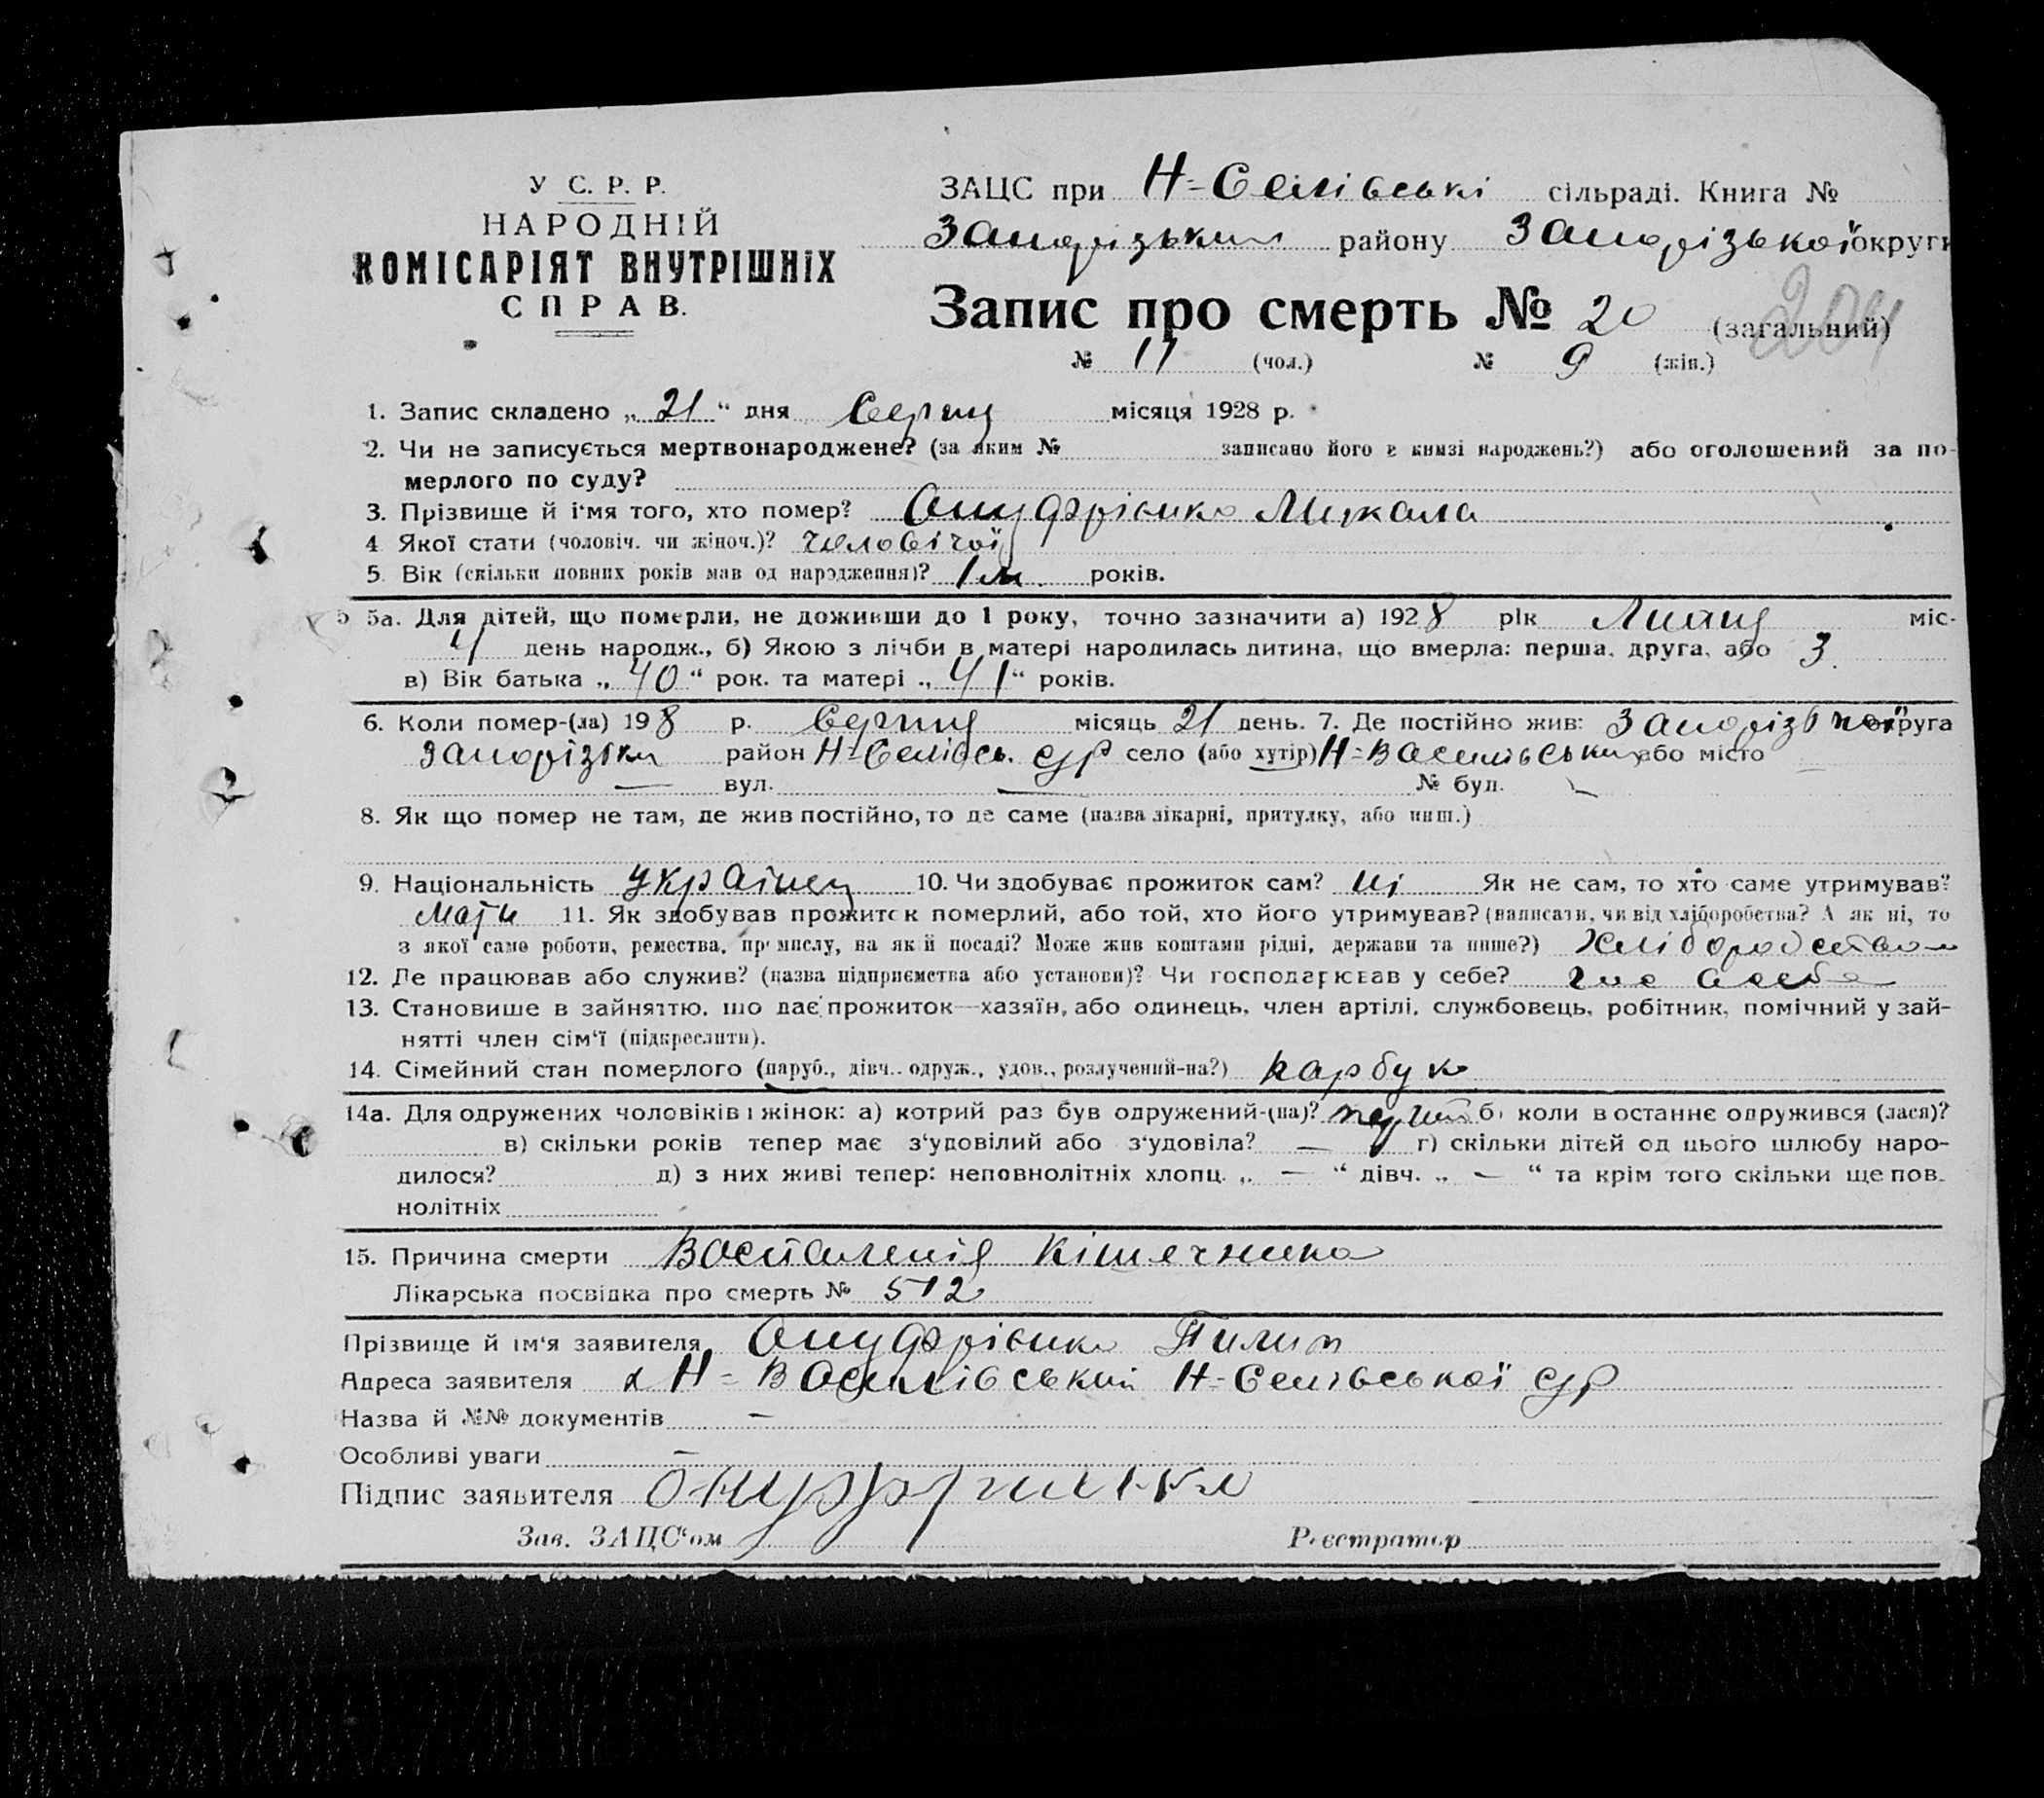 У С. Р. Р.
НАРОДНІЙ
КОМІСАРІЯТ ВНУТРІШНІХ
СПРАВ.
ЗАЦС при Н-Селівські сільраді. Книга №
Запорізький району Запорізької округи
Запис про смерть № 20 (загальний)
204
№ 11 (чол.) № 9 (жін.)
1. Запис складено „21“ дня Серпня місяця 1928 р.
2. Чи не записується мертвонароджене? (за яким № записано його в книзі народжень?) або оголошений за по-
мерлого по суду?
3. Прізвище й і‘мя того, хто помер? Онуфрієнко Микала
4 Якої стати (чоловіч. чи жіноч.)? чоловічої
5. Вік (скільки повних років мав од народження)? 1 м. років.
5а. Для дітей, що померли, не доживши до 1 року, точно зазначити а) 1928 рік Липня міс-
4 день народж., б) Якою з лічби в матері народилась дитина, що вмерла: перша, друга, або 3
в) Вік батька „40“ рок. та матері „41“ років.
6. Коли помер-(ла) 198 р. Серпня місяць 21 день. 7. Де постійно жив: Запорізької округа
Запорізьки район Н-Селівсь. с/р село (або хутір) Н-Василівськи або місто —
— вул. — № буд. —
8. Як що помер не там, де жив постійно, то де саме (назва лікарні, притулку, або инш.)
9. Національність Українец 10. Чи здобуває прожиток сам? ні Як не сам, то хто саме утримував?
Мати 11. Як здобував прожиток померлий, або той, хто його утримував? (написати, чи від хліборобства? А як ні, то
з якої саме роботи, ремества, промислу, на якій посаді? Може жив коштами рідні, держави та инше?) Хліборобством
12. Де працював або служив? (назва підприємства або установи)? Чи господарював у себе? у себе
13. Становище в зайняттю, що дає прожиток—хазяїн, або одинець, член артілі, службовець, робітник, помічний у зай-
нятті член сім‘ї (підкреслити).
14. Сімейний стан померлого (паруб., дівч.. одруж., удов., розлучений-на?) парубок
14а. Для одружених чоловіків і жінок: а) котрий раз був одружений-(на)? б) коли в останнє одружився (лася)?
в) скільки років тепер має з‘удовілий або з‘удовіла? — г) скільки дітей од цього шлюбу наро-
дилося? д) з них живі тепер: неповнолітніх хлопц. „ — “ дівч. „ — “ та крім того скільки ще пов-
нолітніх
15. Причина смерти Воспаленія кішечника
Лікарська посвідка про смерть № 512
Прізвище й ім‘я заявителя Онуфрієнко Пилип
Адреса заявителя х Н-Василівський Н-Селівської с/р
Назва й №№ документів —
Особливі уваги —
Підпис заявителя
Зав. ЗАЦС‘ом Реєстратор